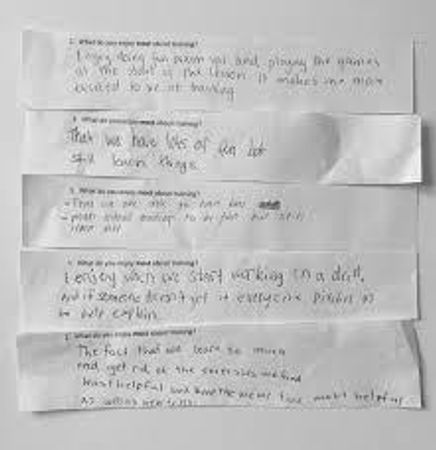 What do you enjoy most about training?
I enjoy doing fun and playing the games
at the start of the lesson it makes me more
excited to be at training
What do you enjoy most about training?
That we have lots of fun but
still learn things
What do you enjoy most about training?
- That we are able to have fun
to be fun but still
What do you enjoy most about training?
I enjoy when we start working on a drill,
and if someone doesn't get it everyone pitches in
to help explain
What do you enjoy most about training?
The fact that we learn so much
and get rid of the exercises we find
least helpful and have the more fun, most helpful
as well as new